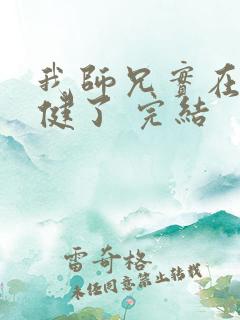 我師兄實在
健了 完結
雷奇格
未經同意禁止轉載